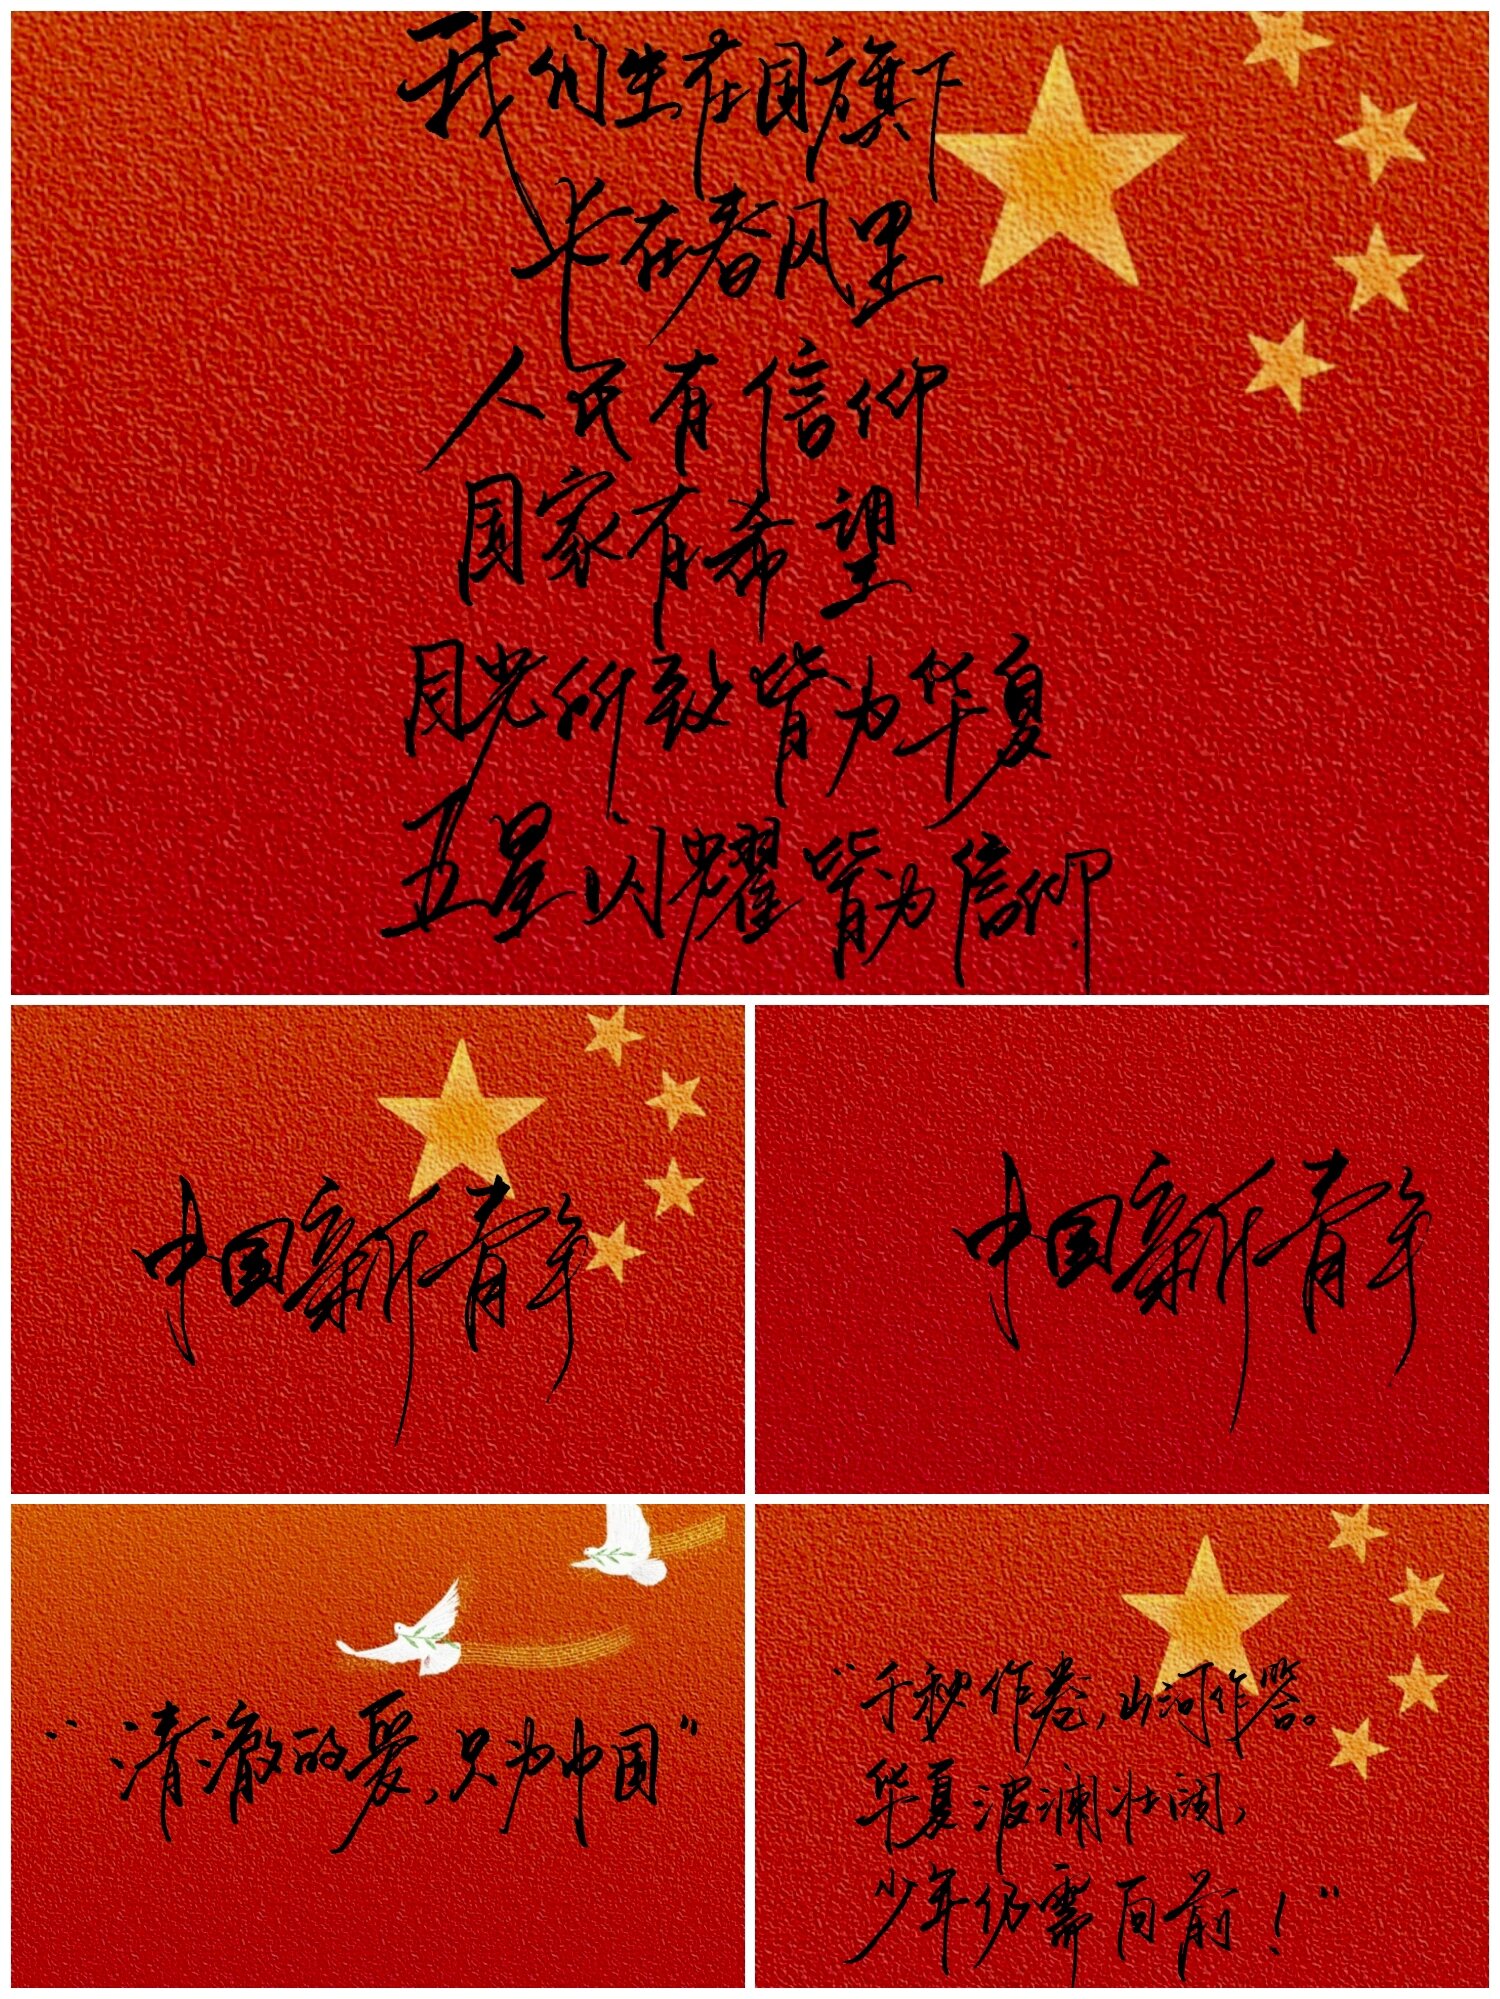 我们生在国旗下
长在春风里
人民有信仰
国家有希望
目光所致皆为华夏
五星闪耀皆为信仰
中国新青年
中国新青年
“清澈的爱，只为中国”
“千秋作卷，山河作答。
华夏波澜壮阔，
少年仍需向前！”